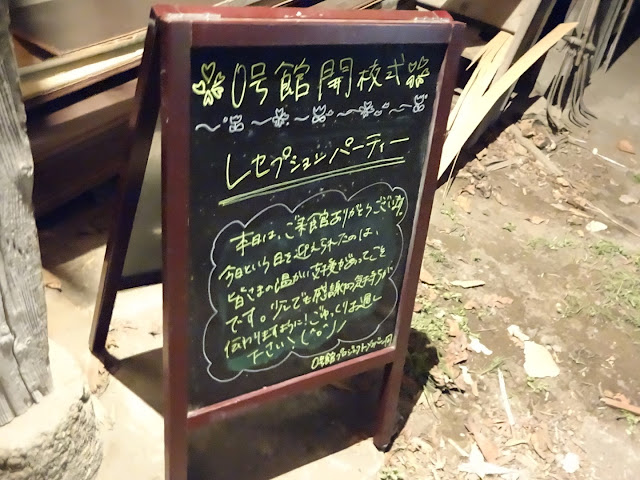 0号館開校式
レセプションパーティー
本日は、ご来館ありがとうございます。
今日という日を迎えられたのは、
皆さまの温かい支援があってこそ
です。少しでも感謝の気持ちが
伝わりますように!ごゆっくりお過し
下さい\(^o^)/
0号館プロジェクト